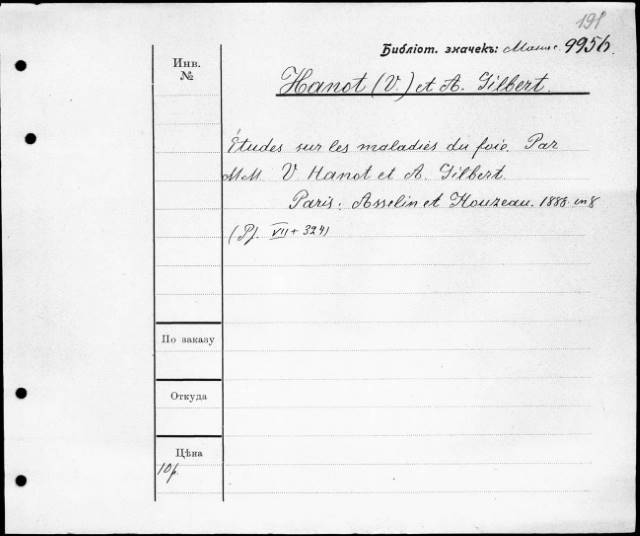 191
Библіот. значекъ: 9956
Hanot (V.) et A. Gilbert.
Инв.
№
Études sur les maladies du foie. Par
MM. V. Hanot et A. Gilbert.
Paris: Asselin et Houzeau. 1888. in 8
(Pf. VII + 324)
По заказу
Откуда
Цѣна
10р.